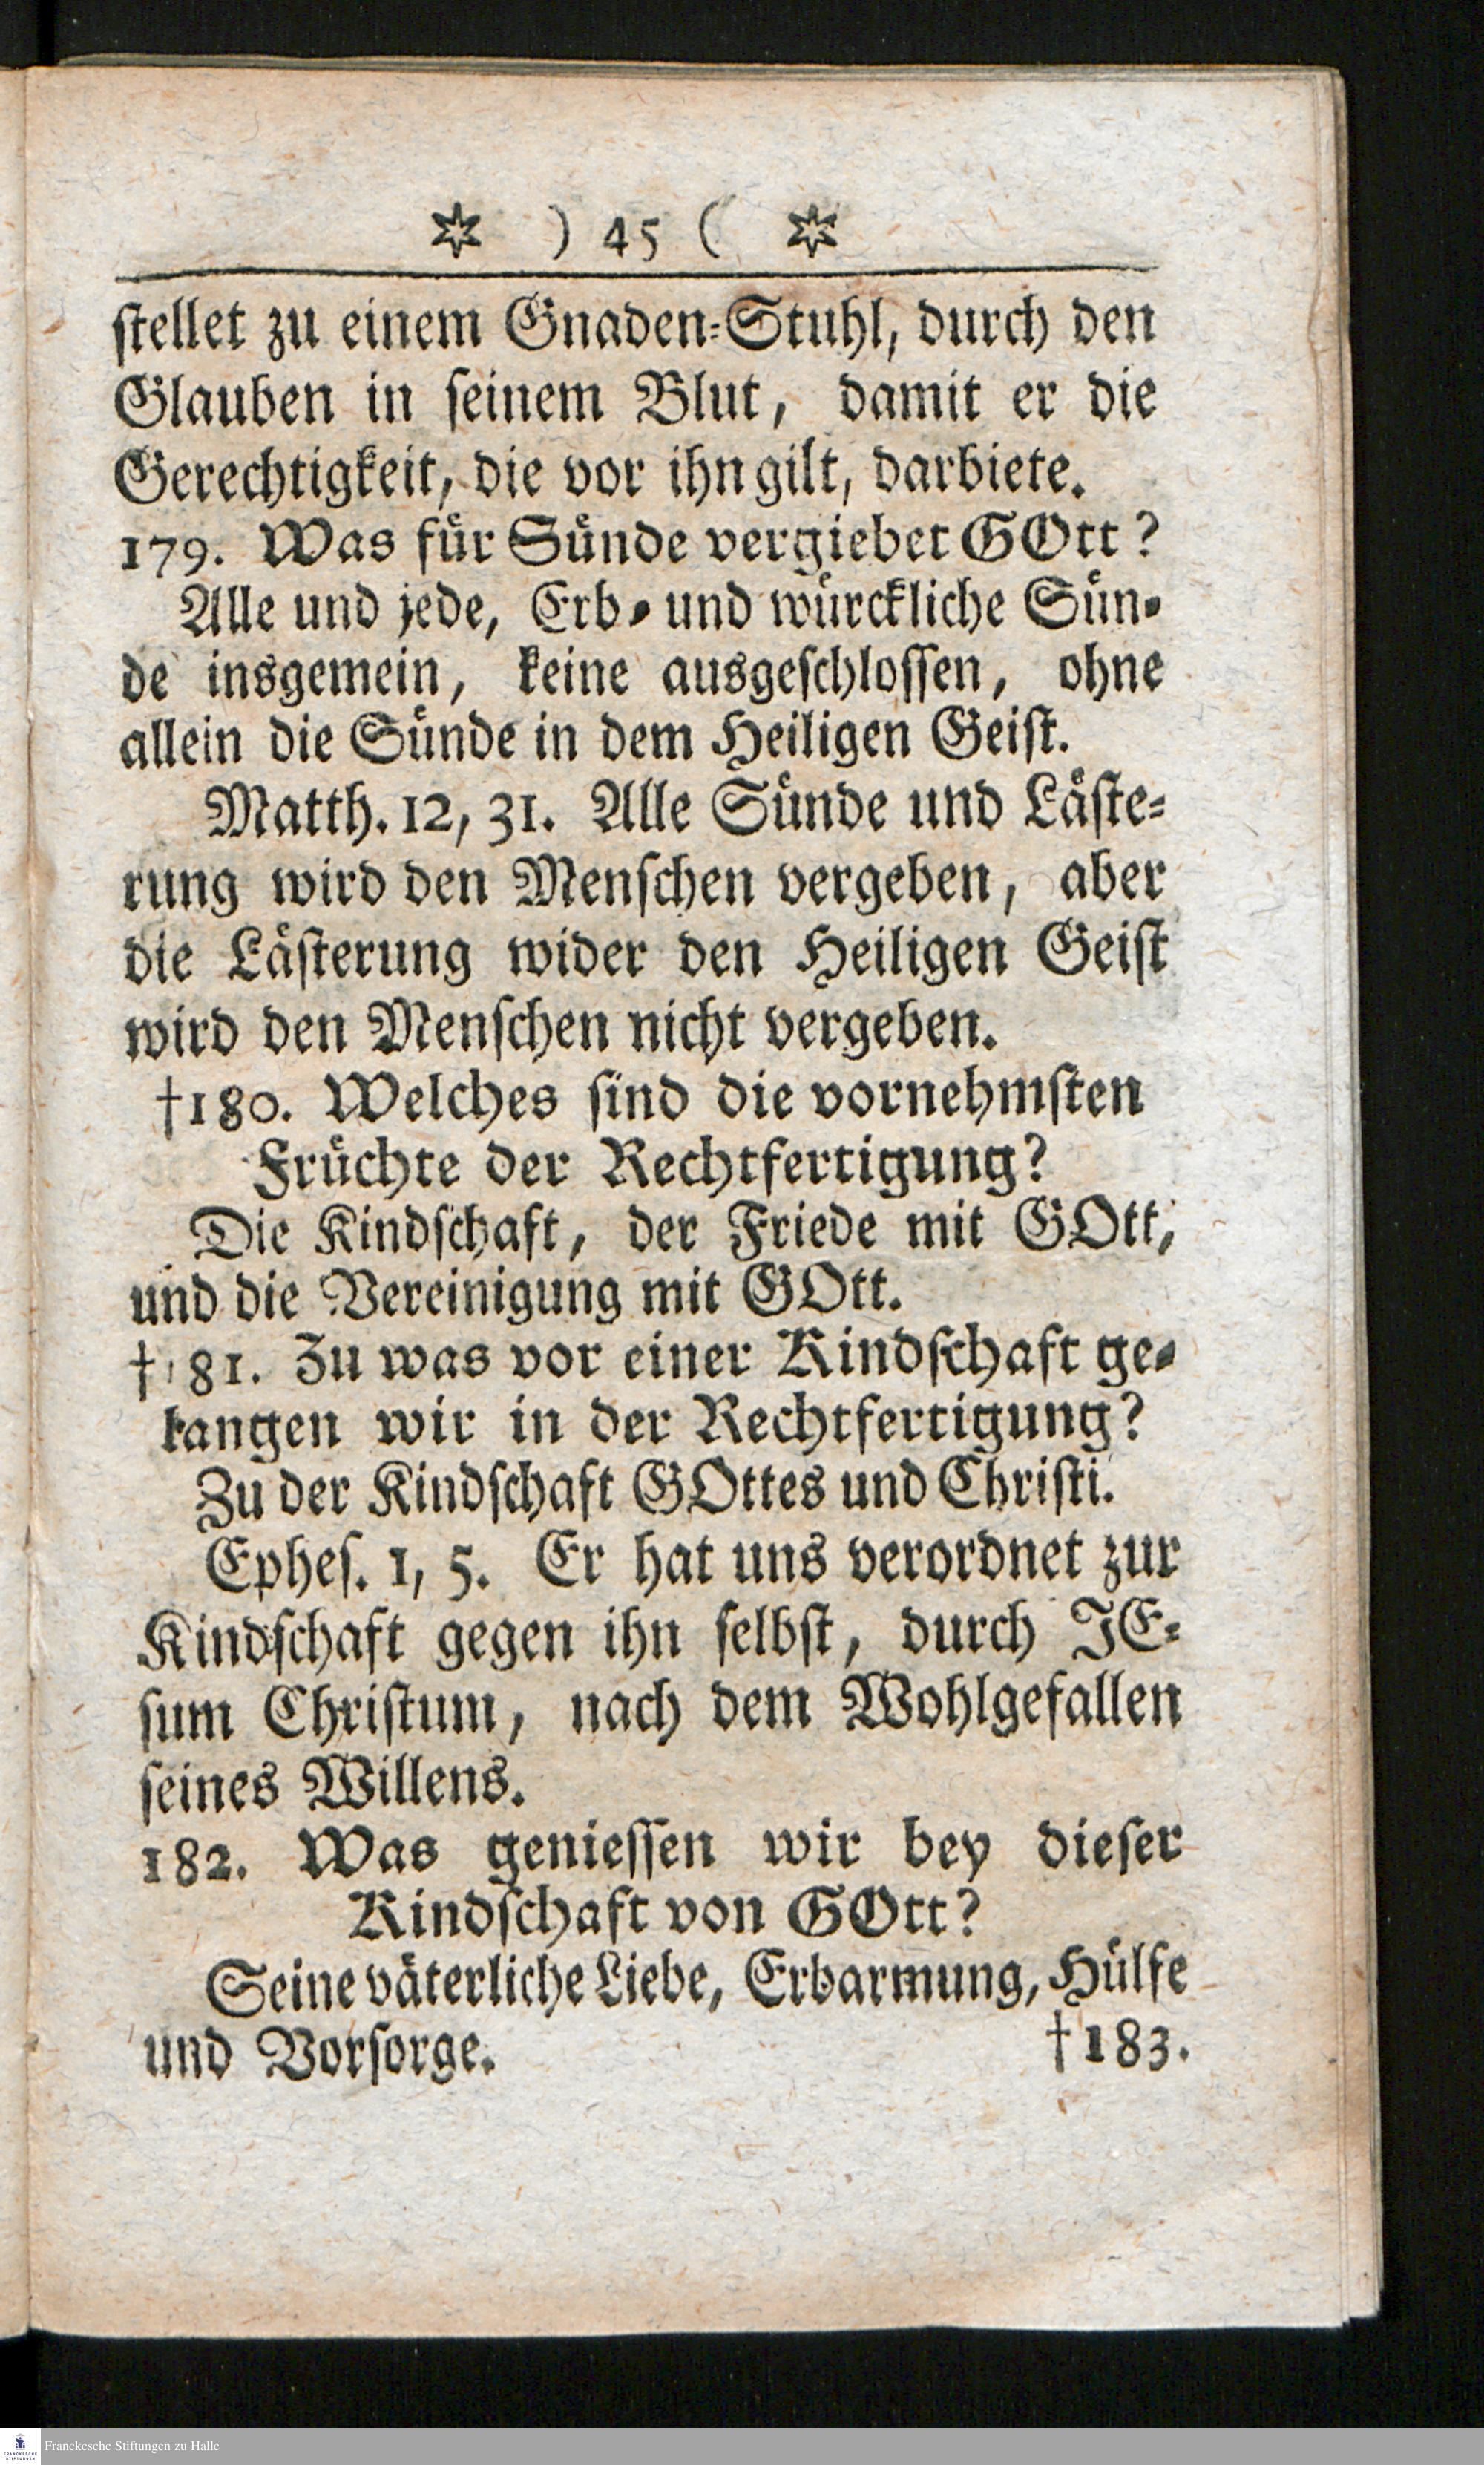 ✡ ) 45 ( ✡
ſtellet zu einem Gnaden-Stuhl, durch den
Glauben in ſeinem Blut, damit er die
Gerechtigkeit, die vor ihn gilt, darbiete.
179. Was für Sünde vergiebet GOtt?
Alle und jede, Erb- und würckliche Sün-
de insgemein, keine ausgeſchloſſen, ohne
allein die Sünde in dem Heiligen Geiſt.
Matth. 12, 31. Alle Sünde und Läſte-
rung wird den Menſchen vergeben, aber
die Läſterung wider den Heiligen Geiſt
wird den Menſchen nicht vergeben.
†180. Welches ſind die vornehmſten
Früchte der Rechtfertigung?
Die Kindſchaft, der Friede mit GOtt,
und die Vereinigung mit GOtt.
†181. Zu was vor einer Kindſchaft ge-
langen wir in der Rechtfertigung?
Zu der Kindſchaft GOttes und Chriſti.
Epheſ. 1, 5. Er hat uns verordnet zur
Kindſchaft gegen ihn ſelbſt, durch JE-
ſum Chriſtum, nach dem Wohlgefallen
ſeines Willens.
182. Was genieſſen wir bey dieſer
Kindſchaft von GOtt?
Seine väterliche Liebe, Erbarmung, Hülfe
und Vorſorge.
†183.
FRANCKESCHE STIFTUNGEN
Franckesche Stiftungen zu Halle